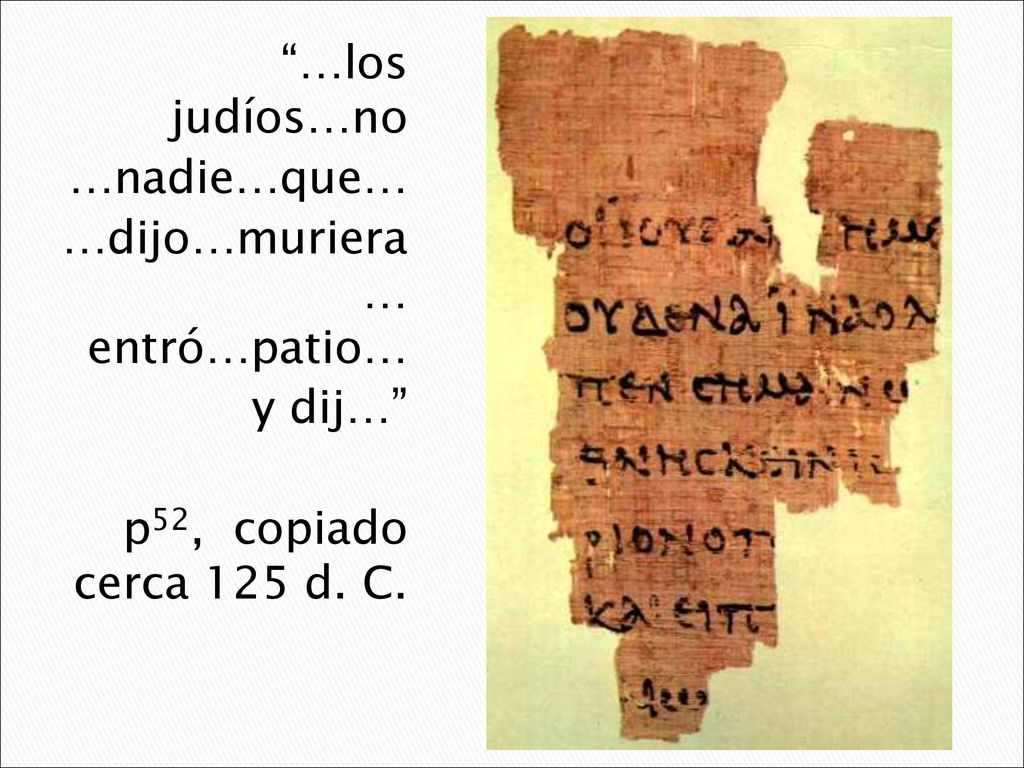 “…los
judíos…no
…nadie…que…
…dijo…muriera
…
entró…patio…
y dij…”
p⁵², copiado
cerca 125 d. C.
ΟΙ ΙΟΥΔΑΙ ΗΜΕ
ΟΥΔΕΝΑ ΪΝΑ Ο Λ
ΠΕΝ CΗΜΑΙΝΩ
ΘΝΗCΚΕΙΝ
ΡΙΟΝ Ο Π
ΚΑΙ ΕΙΠ